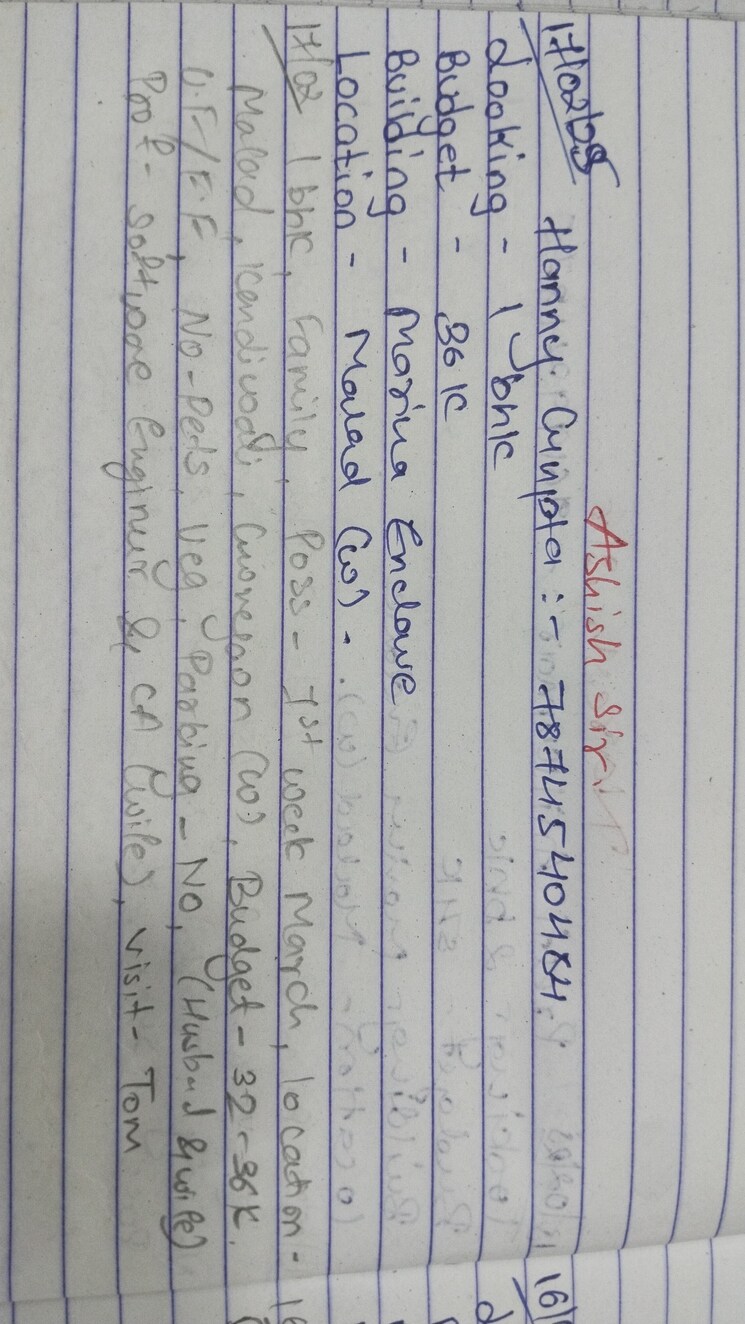 Ashish Sir
17/02/25 Hanny Gunpta :- 7874540484.
Looking - 1 bhk
Budget - 36 K
Building - Marina Enclave
Location - Malad (W) -
17/02 1 bhk, Family, Poss - 1st week March, location -
Malad, Kandivali, Goregaon (W), Budget - 32-36K.
U.F/F.F, No-Peds, Veg, Parking - No, (Husband & wife)
Prof - Software Engineer & CA (wife), visit - Tom
16/